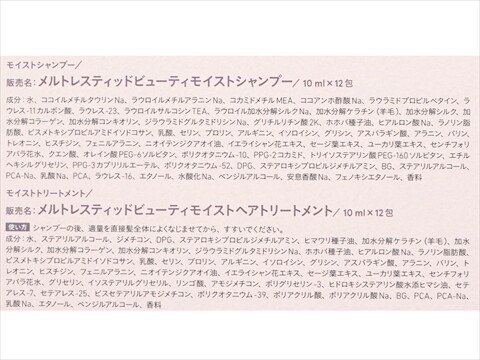 モイストシャンプー／
販売名：メルトレスティッドビューティモイストシャンプー／10ml×12包
成分：水、ココイルメチルタウリンNa、ラウロイルメチルアラニンNa、コカミドメチルMEA、ココアンホ酢酸Na、ラウラミドプロピルベタイン、ラ
ウレス-11カルボン酸、ラウレス-23、ラウロイルサルコシンTEA、ラウロイル加水分解シルクNa、加水分解ケラチン（羊毛）、加水分解シルク、加
水分解コラーゲン、加水分解コンキオリン、ジラウロイルグルタミン酸リシンNa、グリチルリチン酸2K、ホホバ種子油、ヒアルロン酸Na、ラノリン脂
肪酸、ビスメトキシプロピルアミドイソドコサン、乳酸、セリン、プロリン、アルギニン、イソロイシン、グリシン、アスパラギン酸、アラニン、バリン、
トレオニン、ヒスチジン、フェニルアラニン、ニオイテンジクアオイ油、イエライシャン花エキス、セージ葉エキス、ユーカリ葉エキス、センチフォリ
アバラ花水、クエン酸、オレイン酸PEG-6ソルビタン、ポリクオタニウム-10、PPG-2コカミド、トリイソステアリン酸PEG-160ソルビタン、エチル
ヘキシルグリセリン、PPG-3カプリリルエーテル、ポリクオタニウム-52、DPG、ステアロキシプロピルジメチルアミン、BG、ステアリルアルコール、
PCA-Na、乳酸Na、PCA、ラウレス-16、エタノール、水酸化Na、ベンジルアルコール、安息香酸Na、フェノキシエタノール、香料
モイストトリートメント／
販売名：メルトレスティッドビューティモイストヘアトリートメント／10ml×12包
使い方 シャンプーの後、適量を直接髪全体によくなじませてから、すすいでください。
成分：水、ステアリルアルコール、ジメチコン、DPG、ステアロキシプロピルジメチルアミン、ヒマワリ種子油、加水分解ケラチン（羊毛）、加水
分解シルク、加水分解コラーゲン、加水分解コンキオリン、ジラウロイルグルタミン酸リシンNa、ホホバ種子油、ヒアルロン酸Na、ラノリン脂肪酸、
ビスメトキシプロピルアミドイソドコサン、乳酸、セリン、プロリン、アルギニン、イソロイシン、グリシン、アスパラギン酸、アラニン、バリン、ト
レオニン、ヒスチジン、フェニルアラニン、ニオイテンジクアオイ油、イエライシャン花エキス、セージ葉エキス、ユーカリ葉エキス、センチフォリ
アバラ花水、グリセリン、イソステアリルグリセリル、リンゴ酸、アモジメチコン、ポリグリセリン-3、ヒドロキシステアリン酸水添ヒマシ油、セテ
アレス-7、セテアレス-25、ビスセテアリルアモジメチコン、ポリクオタニウム-39、ポリアクリル酸、ポリアクリル酸Na、BG、PCA、PCA-Na、
乳酸Na、エタノール、ベンジルアルコール、香料